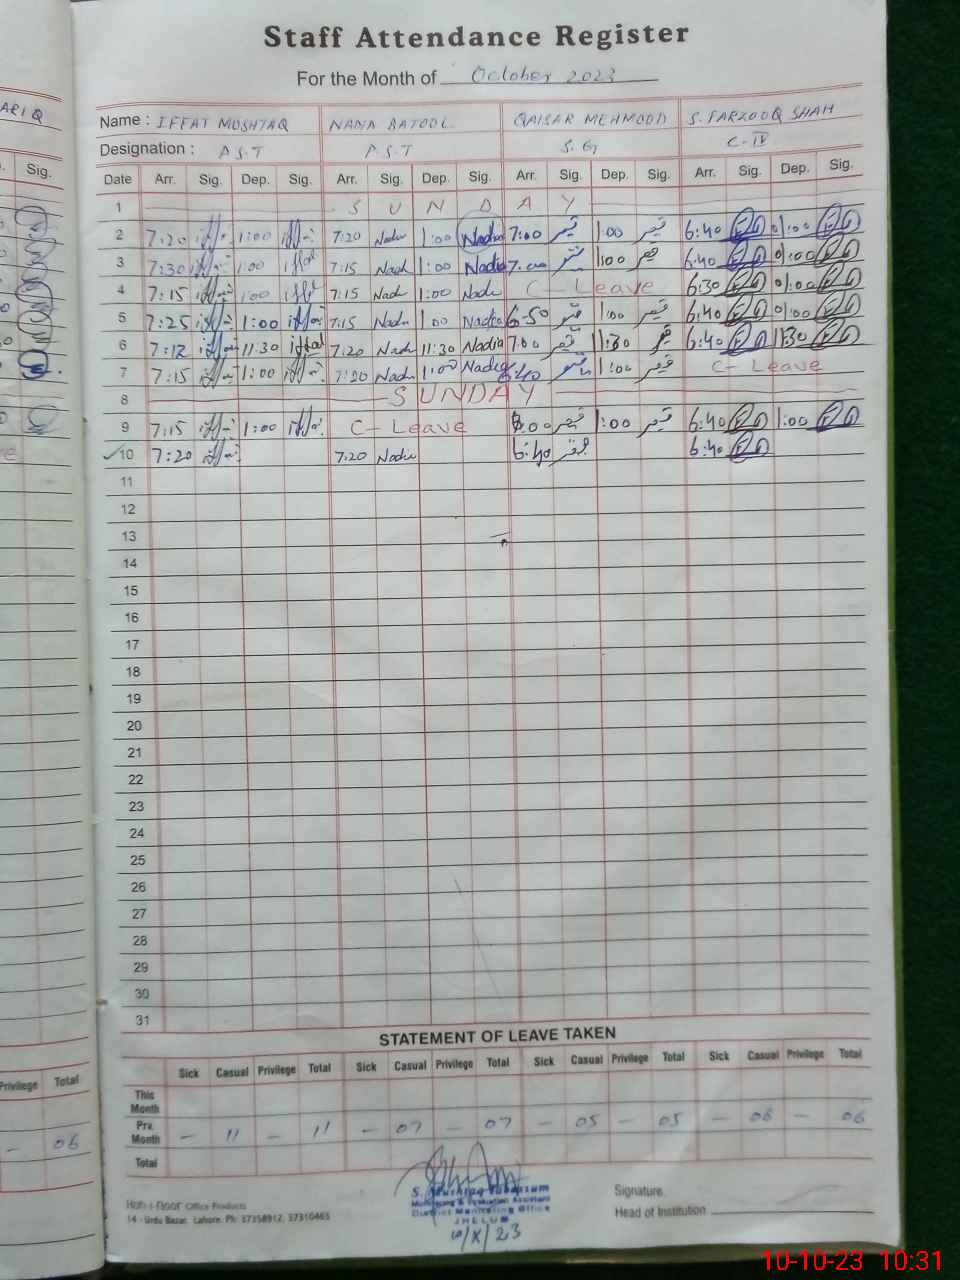 Staff Attendance Register
For the Month of October 2023
ARIQ
Name : IFFAT MUSHTAQ NANA BATOOL QAISAR MEHMOOD S. FARZOOQ SHAH
Designation : P.S.T P.S.T S.G C-IV
Sig. Date Arr. Sig. Dep. Sig. Arr. Sig. Dep. Sig. Arr. Sig. Dep. Sig. Arr. Sig. Dep. Sig.
1 S U N D A Y
2 7:20 1:00 7:20 Nadia 1:00 Nadia 7:00 قیصر 1:00 قیصر 6:40 01:00
3 7:30 1:00 7:15 Nadi 1:00 Nadia 7:00 1:00 6:40 01:00
4 7:15 1:00 7:15 Nadi 1:00 Nadi C-Leave 6:30 01:00
5 7:25 1:00 7:15 Nadi 1:00 Nadia 6:50 1:00 6:40 01:00
6 7:12 11:30 7:20 Nadi 11:30 Nadia 7:00 11:30 6:40 11:30
7 7:15 1:00 7:20 Nadi 1:00 Nadia 6:40 1:00 قیصر C-Leave
8 SUNDAY
9 7:15 1:00 C-Leave 8:00 1:00 6:40 1:00
10 7:20 7:20 Nadia 6:40 6:40
11
12
13
14
15
16
17
18
19
20
21
22
23
24
25
26
27
28
29
30
31
STATEMENT OF LEAVE TAKEN
Privilege Total Sick Casual Privilege Total Sick Casual Privilege Total Sick Casual Privilege Total Sick Casual Privilege Total
This Month
Pre. Month - 11 - 11 - 07 - 07 - 05 - 05 - 06 - 06
- 06
Total
S. Mushtaq Tabassum
Monitoring & Evaluation Assistant
District Monitoring Office
JHELUM
Office Products
14 - Urdu Bazar, Lahore. Ph: 37358912, 37310465
Signature.
Head of Institution
10-10-23 10:31